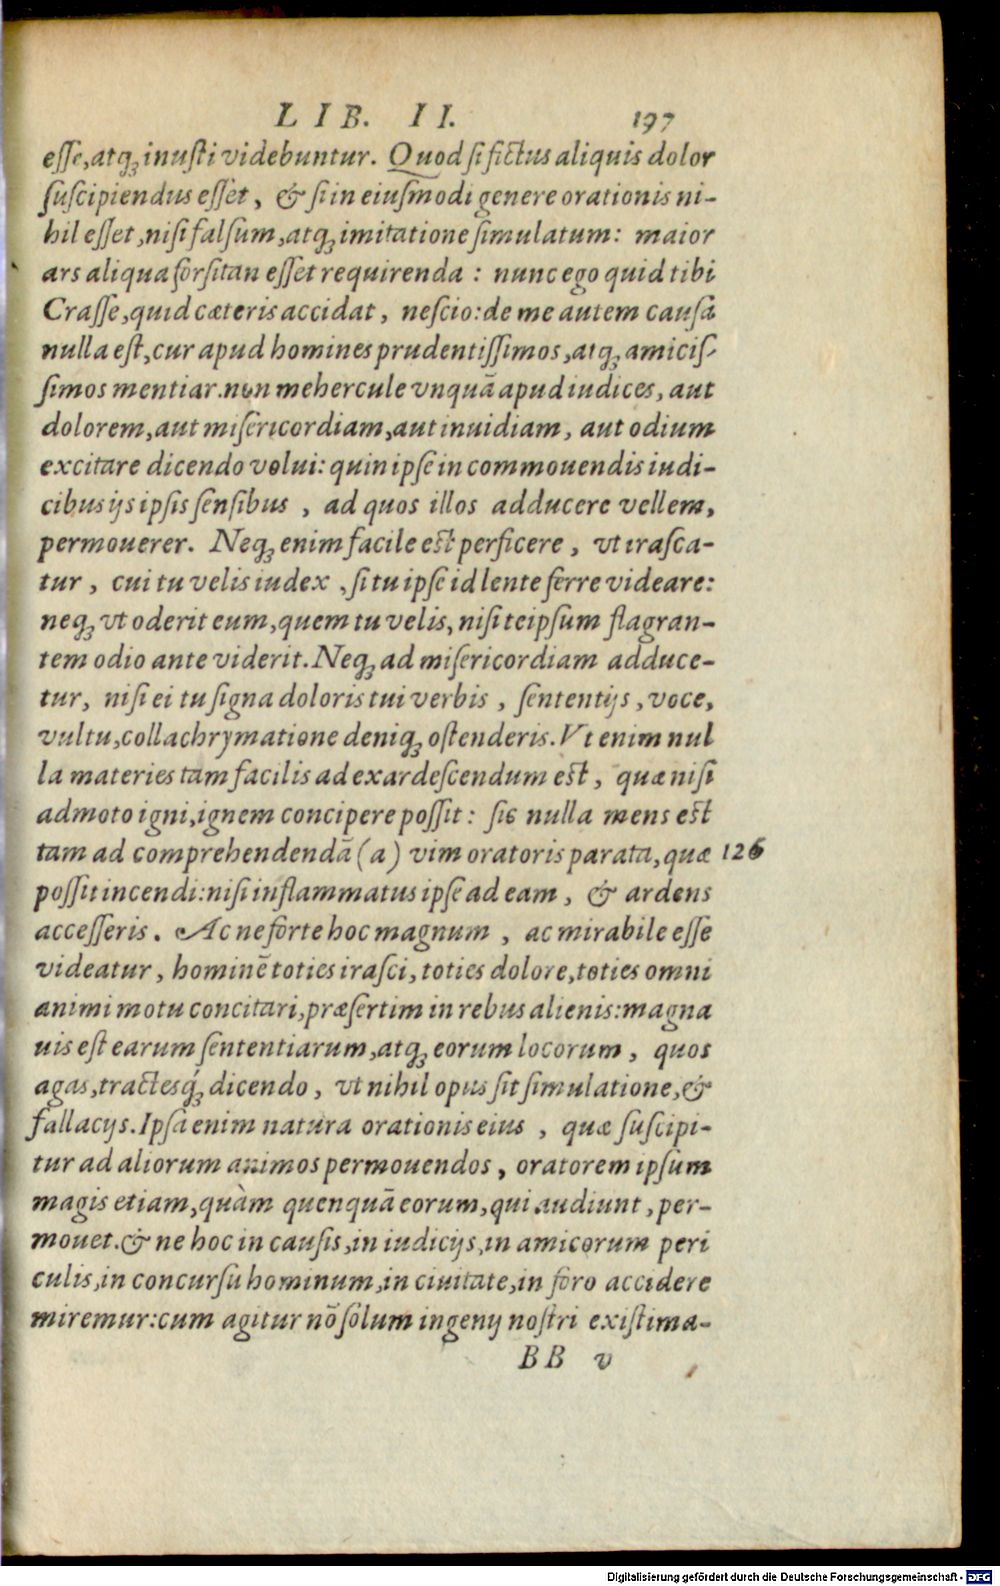 LIB. II. 197
esse, atq; inusti videbuntur. Quod si fictus aliquis dolor
suscipiendus essèt, & si in eiusmodi genere orationis ni-
hil esset, nisi falsum, atq; imitatione simulatum: maior
ars aliqua forsitan esset requirenda: nunc ego quid tibi
Crasse, quid cæteris accidat, nescio: de me autem causa
nulla est, cur apud homines prudentissimos, atq; amicis-
simos mentiar. non mehercule vnquā apud iudices, aut
dolorem, aut misericordiam, aut inuidiam, aut odium
excitare dicendo volui: quin ipse in commouendis iudi-
cibus ijs ipsis sensibus, ad quos illos adducere vellem,
permouerer. Neq; enim facile est perficere, vt irasca-
tur, cui tu velis iudex, si tu ipse id lente ferre videare:
neq; vt oderit eum, quem tu velis, nisi teipsum flagran-
tem odio ante viderit. Neq; ad misericordiam adduce-
tur, nisi ei tu signa doloris tui verbis, sententijs, voce,
vultu, collachrymatione deniq; ostenderis. Vt enim nul
la materies tam facilis ad exardescendum est, quæ nisi
admoto igni, ignem concipere possit: sic nulla mens est
tam ad comprehendendā (a) vim oratoris parata, quæ 126
possit incendi: nisi inflammatus ipse ad eam, & ardens
accesseris. Ac ne forte hoc magnum, ac mirabile esse
videatur, hominē toties irasci, toties dolore, toties omni
animi motu concitari, præsertim in rebus alienis: magna
uis est earum sententiarum, atq; eorum locorum, quos
agas, tractesq́; dicendo, vt nihil opus sit simulatione, &
fallacijs. Ipsa enim natura orationis eius, quæ suscipi-
tur ad aliorum animos permouendos, oratorem ipsum
magis etiam, quàm quenquā eorum, qui audiunt, per-
mouet. & ne hoc in causis, in iudicijs, in amicorum peri
culis, in concursu hominum, in ciuitate, in foro accidere
miremur: cum agitur nō solum ingenij nostri existima-
BB v
Digitalisierung gefördert durch die Deutsche Forschungsgemeinschaft - DFG